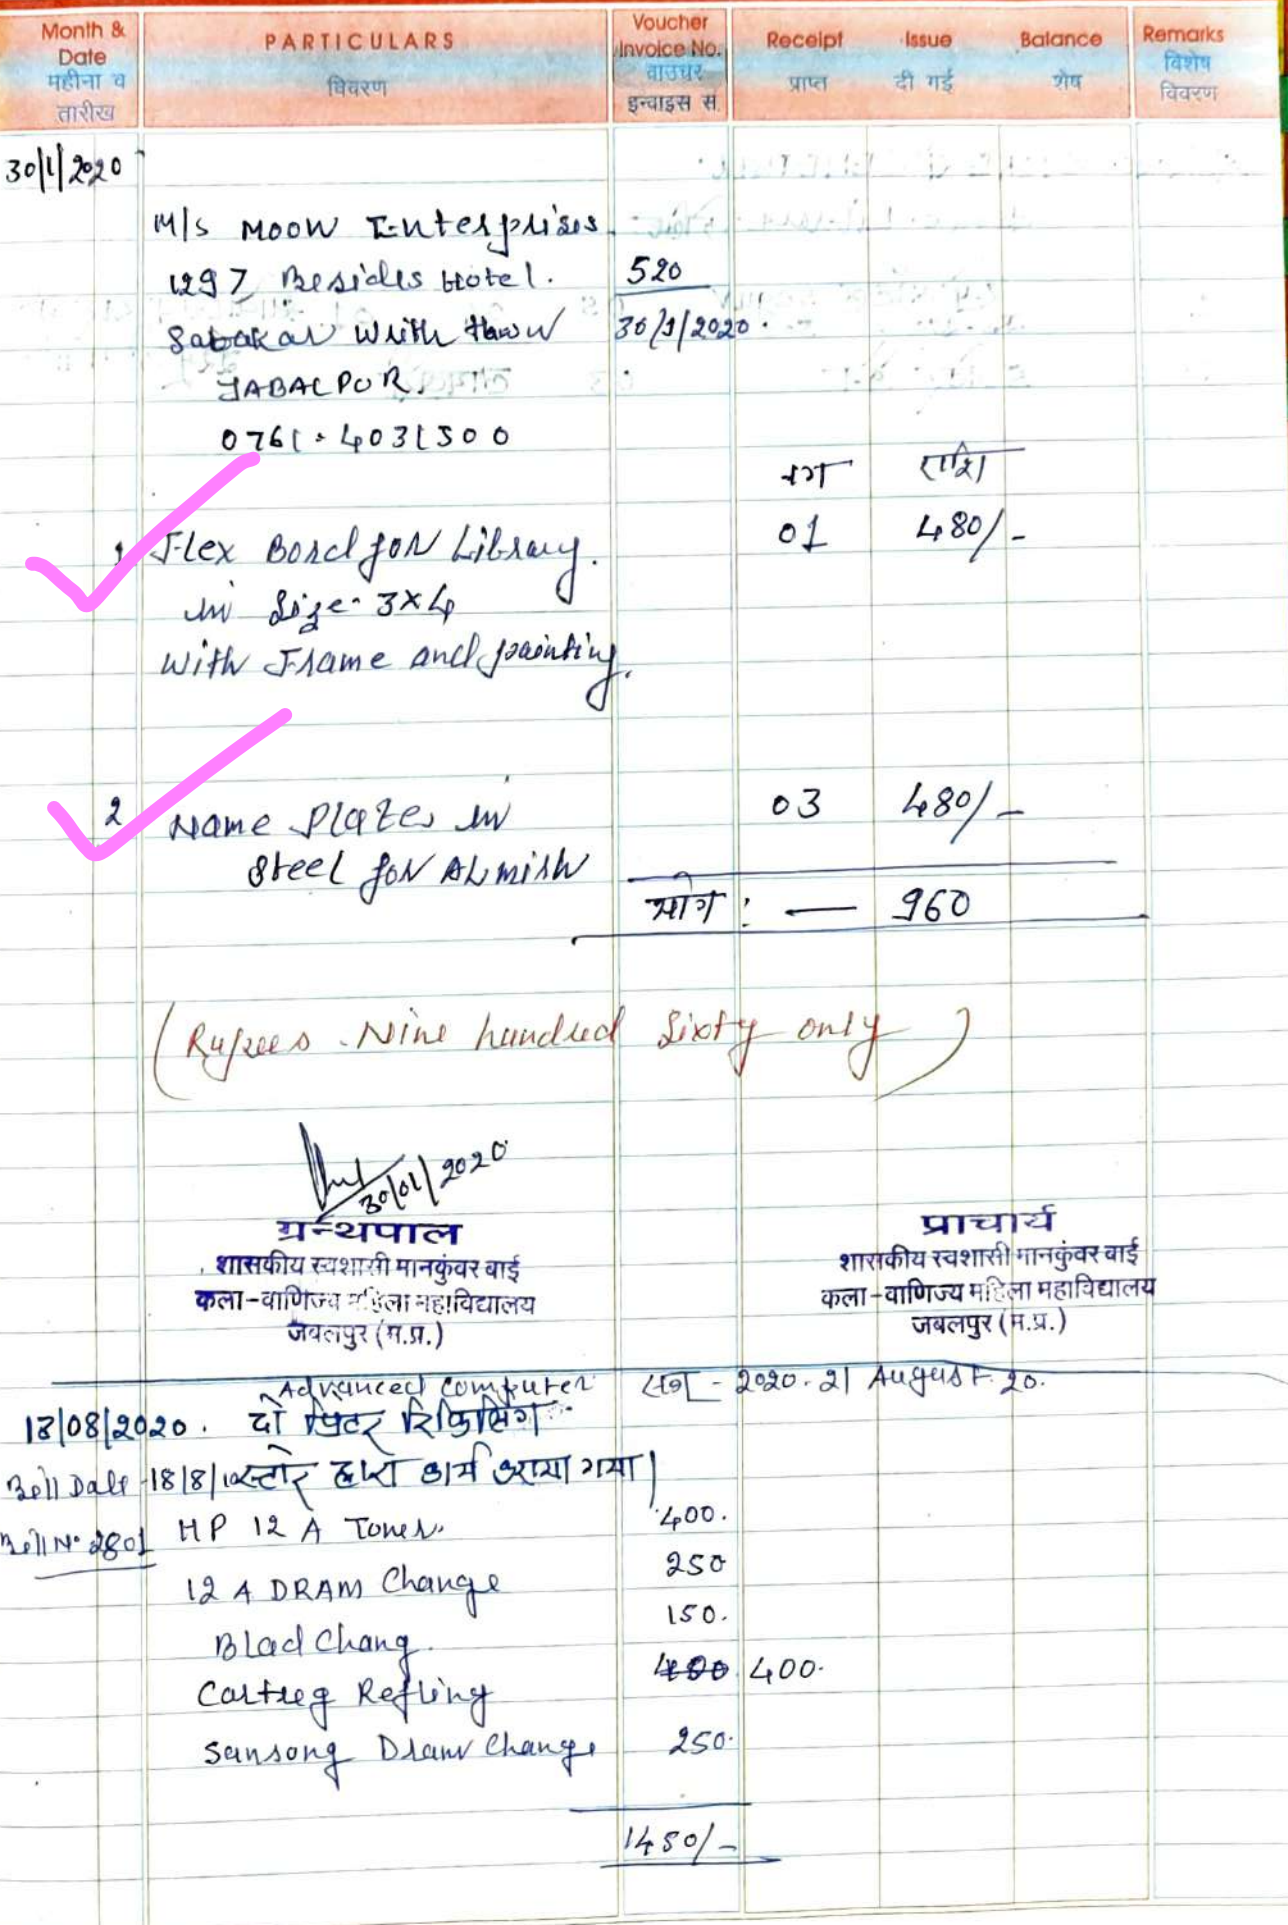 Month & Date महीना व तारीख PARTICULARS विवरण Voucher Invoice No. वाउचर इन्वाइस सं. Receipt प्राप्त Issue दी गई Balance शेष Remarks विशेष विवरण
30/1/2020
M/s Moon Enterprises
1297 Besides Hotel. 520
30/1/2020.
JABALPUR.
0761-4031500
नग राशि
1 Flex Bord for Library. 01 480/-
in Size- 3×4
with Frame and painting.
2 Name Plates in 03 480/-
Steel for ALmirh
योग : — 960
(Rupees Nine hundred Sixty only)
30/01/2020
ग्रन्थपाल
शासकीय स्वशासी मानकुंवर बाई
कला-वाणिज्य महिला महाविद्यालय
जबलपुर (म.प्र.)
प्राचार्य
शासकीय स्वशासी मानकुंवर बाई
कला-वाणिज्य महिला महाविद्यालय
जबलपुर (म.प्र.)
Advanced Computer सन् - 2020-21 August-20.
18/08/2020. दो प्रिंटर
Bell Date 18/8/ स्टोर द्वारा कार्य कराया गया।
Bell No 2801 HP 12 A Toner. 400.
12 A DRAM Change 250
Blad Chang. 150.
Cartreg Refling 400.
Sansong Dram Change 250.
1450/-